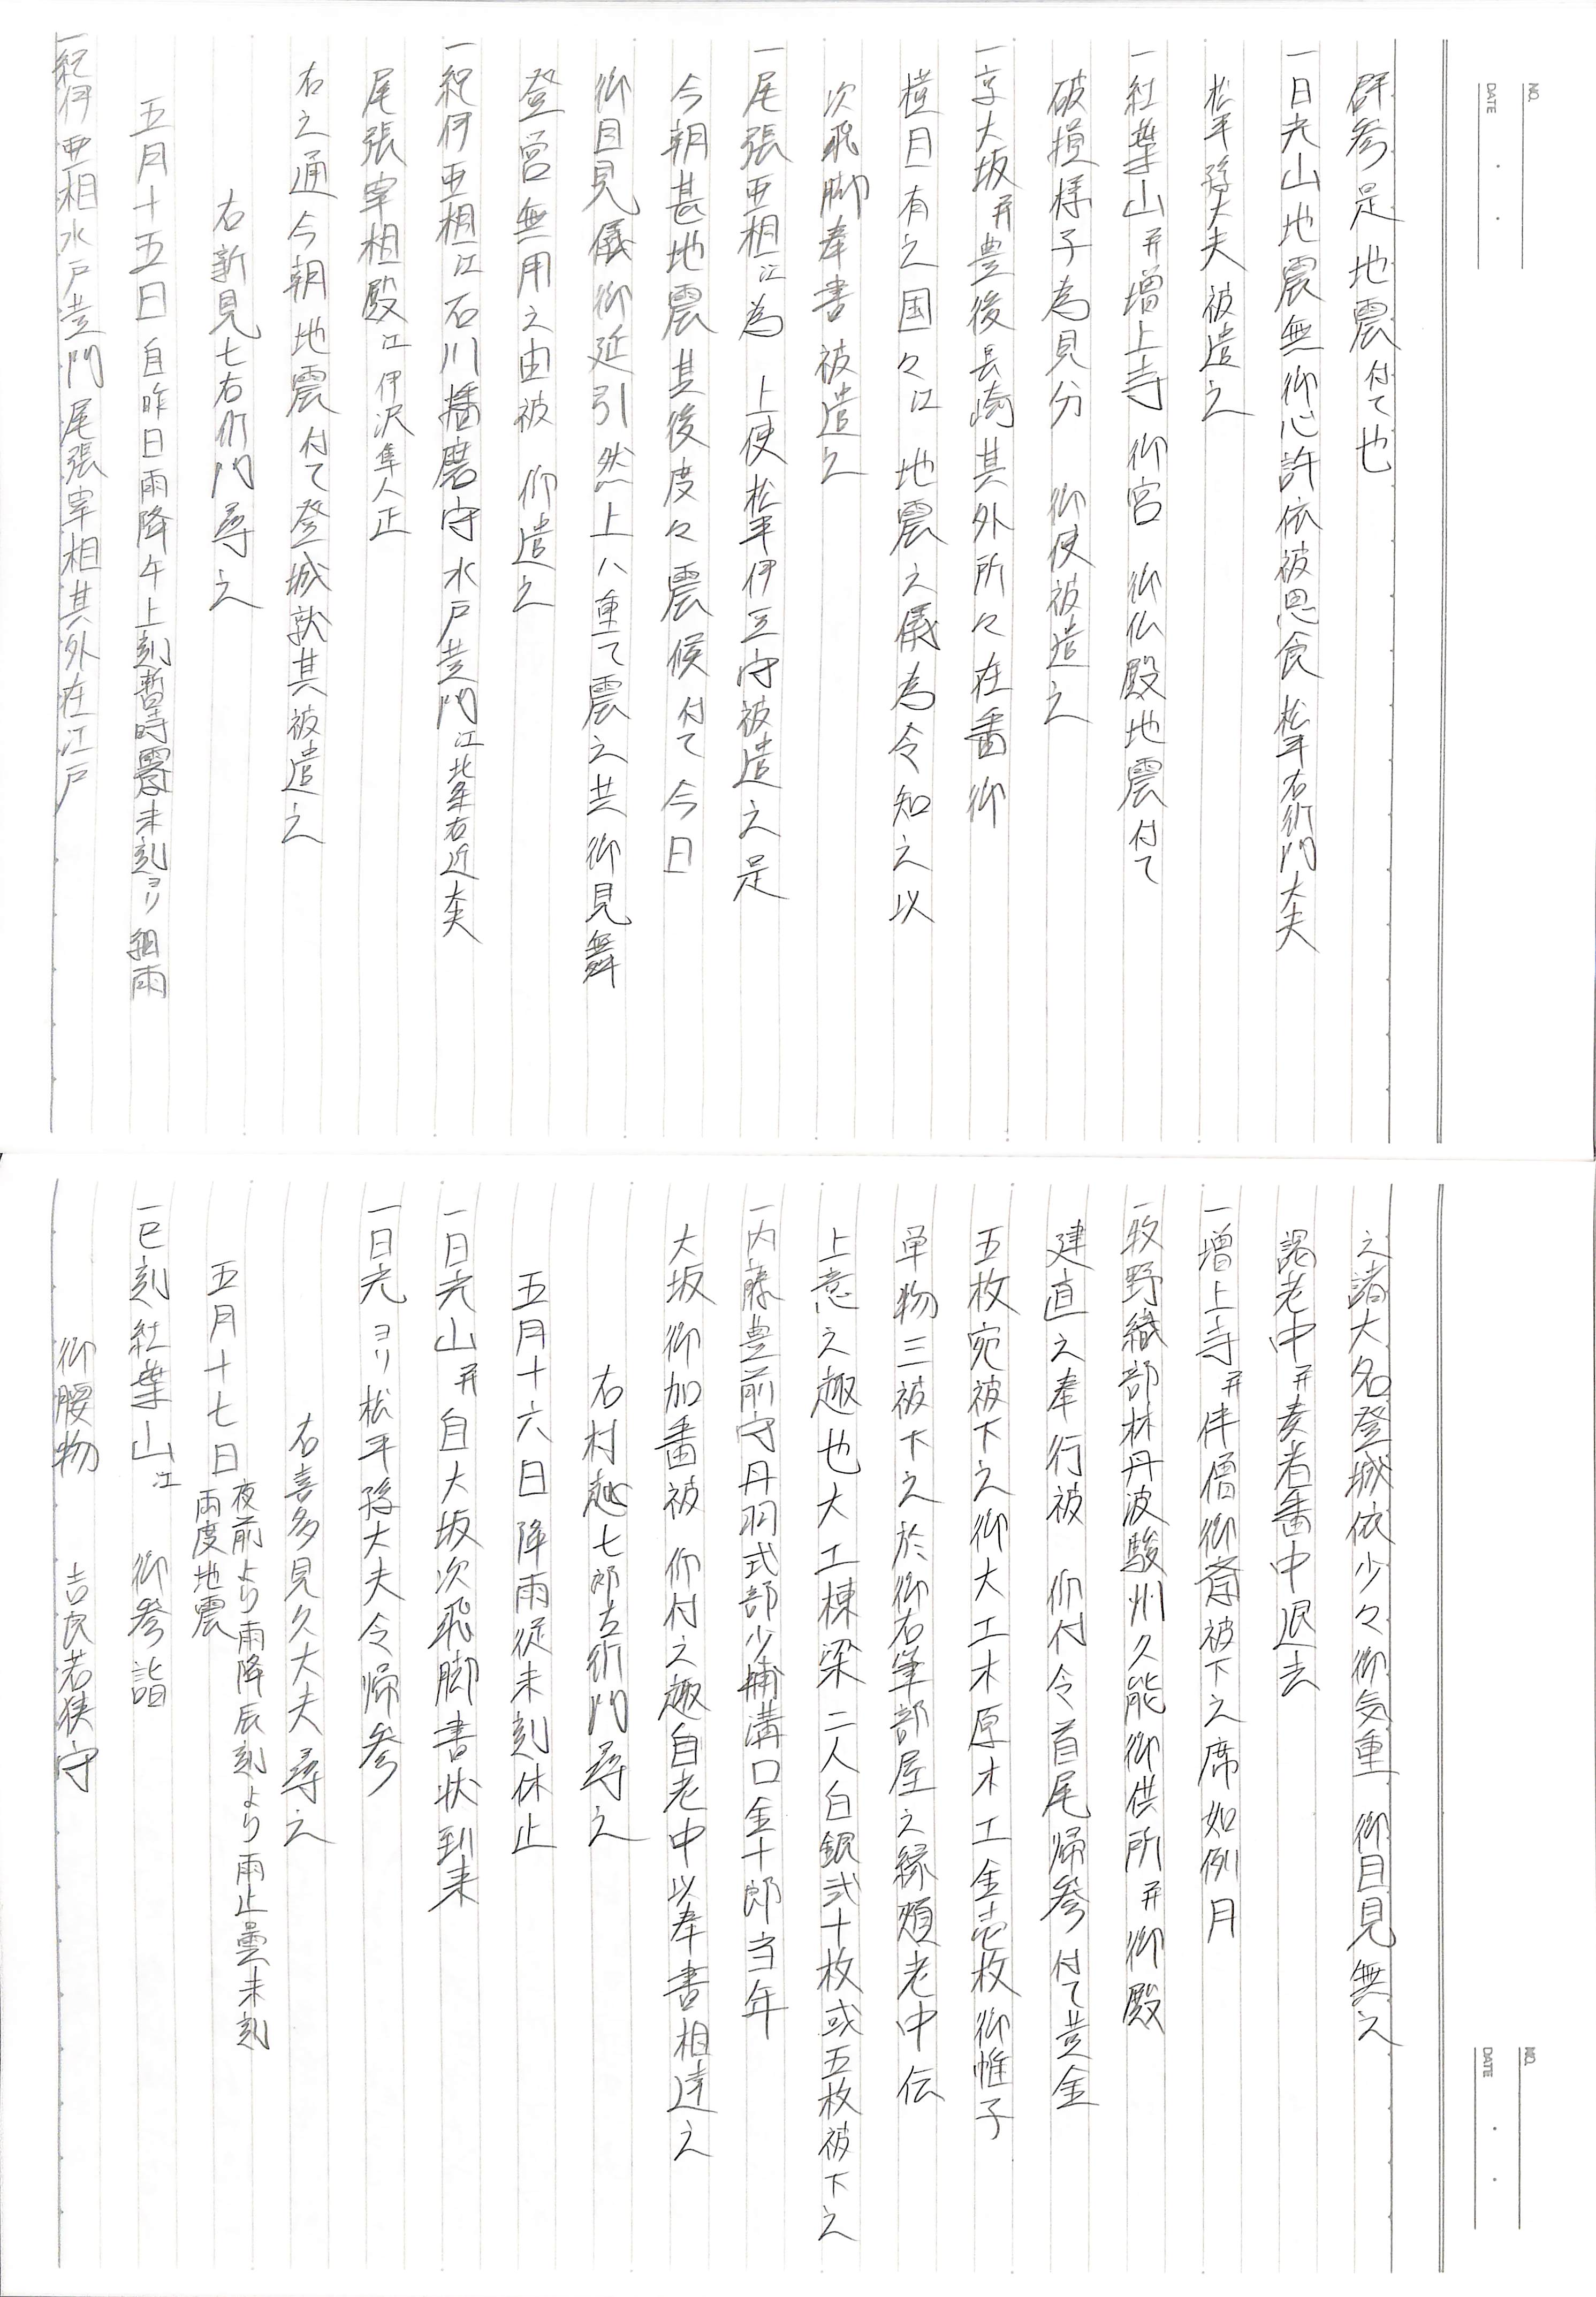 NO.
DATE
群参是地震付て也
一日光山地震無御心許依被思食松平右衛門大夫
松平孫大夫被遣之
一紅葉山并増上寺 御宮 御仏殿地震付て
破損様子為見分 御使被遣之
一京大坂并豊後長崎其外所々在番御
横目有之国々江地震之儀為令知之以
次飛脚奉書被遣之
一尾張亜相江為 上使松平伊豆守被遣之是
今朝甚地震其後度々震候付て今日
御目見儀御延引然上ハ重て震之共御見舞
登営無用之由被 仰遣之
一紀伊亜相江石川播磨守水戸黄門江北条右近大夫
尾張宰相殿江伊沢隼人正
右之通今朝地震付て登城就其被遣之
右新見七右衛門尋之
五月十五日自昨日雨降午上刻暫時震未刻ヨリ細雨
一紀伊亜相水戸黄門尾張宰相其外在江戸
NO.
DATE
之諸大名登城依少々御気重 御目見無之
謁老中并奏者番中退去
一増上寺并伴僧御斎被下之席如例月
一牧野織部林丹波駿州久能御供所并御殿
建直之奉行被 仰付令首尾帰参付て黄金
五枚宛被下之御大工木原木工金壱枚御帷子
単物三被下之於御右筆部屋之縁頬老中伝
上意之趣也大工棟梁二人白銀弐十枚或五枚被下之
一内藤豊前守丹羽式部少輔溝口金十郎当年
大坂御加番被 仰付之趣自老中以奉書相達之
右村越七郎左衛門尋之
五月十六日降雨従未刻休止
一日光山并自大坂次飛脚書状到来
一日光ヨリ松平孫大夫令帰参
右喜多見久大夫尋之
五月十七日夜前より雨降辰刻より雨止曇未刻
両度地震
一巳刻紅葉山江 御参詣
御腰物 吉良若狭守